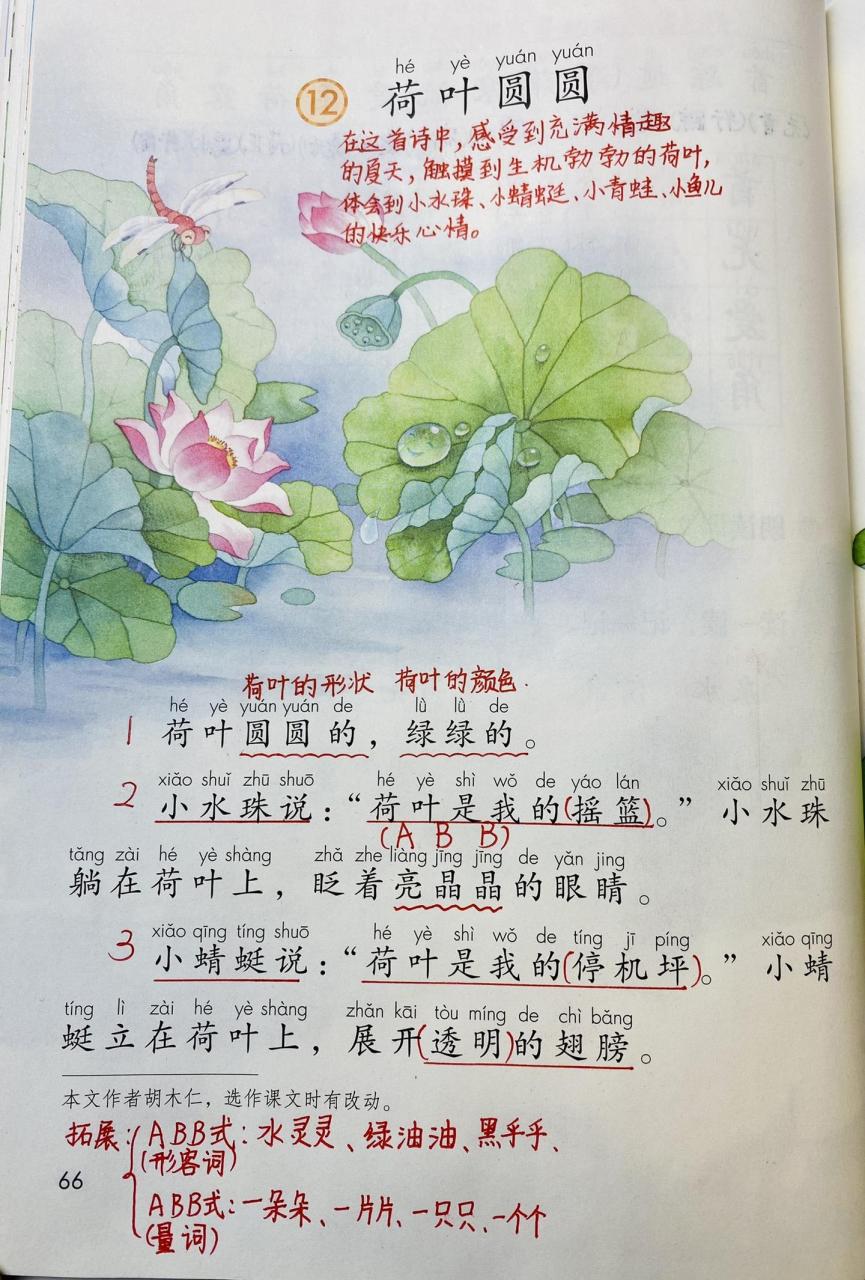 hé yè yuán yuán
12 荷叶圆圆
在这首诗中，感受到充满情趣
的夏天，触摸到生机勃勃的荷叶，
体会到小水珠、小蜻蜓、小青蛙、小鱼儿
的快乐心情。
荷叶的形状 荷叶的颜色.
hé yè yuán yuán de lǜ lǜ de
1 荷叶圆圆的，绿绿的。
xiǎo shuǐ zhū shuō hé yè shì wǒ de yáo lán xiǎo shuǐ zhū
2 小水珠说：“荷叶是我的(摇篮)。”小水珠
(A B B)
tǎng zài hé yè shàng zhǎ zhe liàng jīng jīng de yǎn jing
躺在荷叶上，眨着亮晶晶的眼睛。
xiǎo qīng tíng shuō hé yè shì wǒ de tíng jī píng xiǎo qīng
3 小蜻蜓说：“荷叶是我的(停机坪)。”小蜻
tíng lì zài hé yè shàng zhǎn kāi tòu míng de chì bǎng
蜓立在荷叶上，展开(透明)的翅膀。
本文作者胡木仁，选作课文时有改动。
拓展：ABB式：水灵灵、绿油油、黑乎乎、
(形容词)
66
ABB式：一朵朵、一片片、一只只、一个个
(量词)